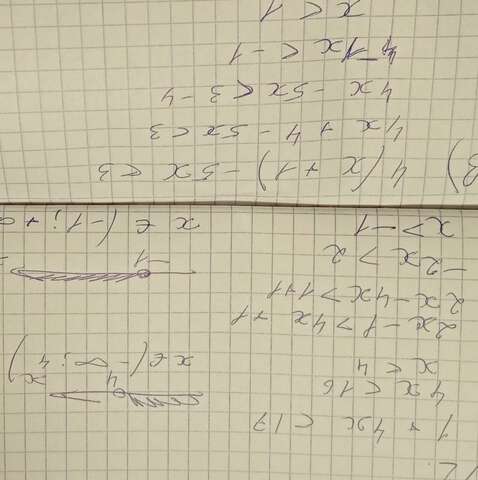 1 + 4x < 17
4x < 16
x < 4
4 x
x ∈ (-∞; 4)
2x - 1 > 4x + 1
2x - 4x > 1+1
-2x > 2
x > -1
-1
x ∈ (-1; +
3) 4(x+1) - 5x < 3
4x + 4 - 5x < 3
4x - 5x < 3-4
-1x < -1
x < 1